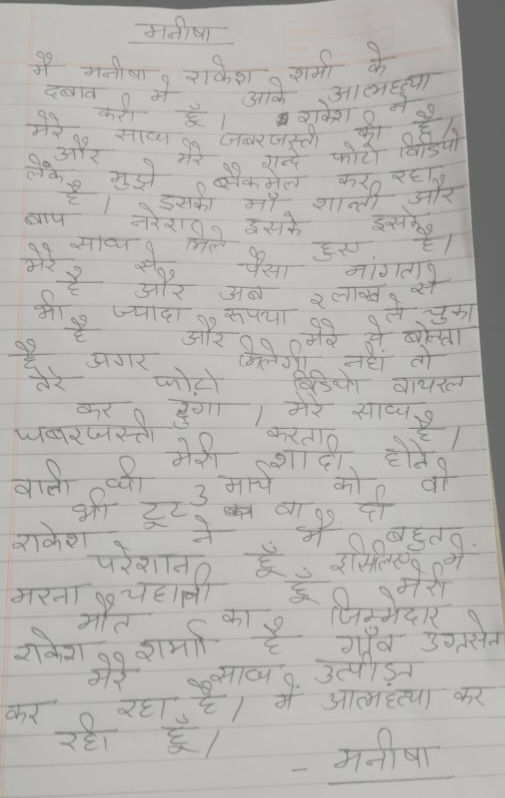 मनीषा
मैं मनीषा राकेश शर्मा के
दबाव में आके आत्महत्या
करी हूँ। राकेश ने
मेरे साथ जबरजस्ती की है।
और मेरे गन्दे फोटो विडियो
लेके मुझे ब्लैकमेल कर रहा
है। इसकी माँ शान्ती और
बाप नरेश इसके इसके
साथ मिले हुए है।
मेरे से पैसा मांगता
है और अब 2 लाख से
भी ज्यादा रूपया ले चुका
है और मेरे से बोलता
है अगर मिलेगी नहीं तो
तेरे फोटो विडियो वायरल
कर दुगा। मेरे साथ
जबरजस्ती करता है।
मेरी शादी होने
वाली थी 3 मार्च को वो
भी टूट वा दी
राकेश ने मैं बहुत
परेशान हूँ इसिलिए मैं
मरना चहाती हूँ मेरी
मौत का जिम्मेदार
राकेश शर्मा है गाँव उग्रसेन
मेरे साथ उत्पीड़न
कर रहा है। मैं आत्महत्या कर
रही हूँ।
- मनीषा